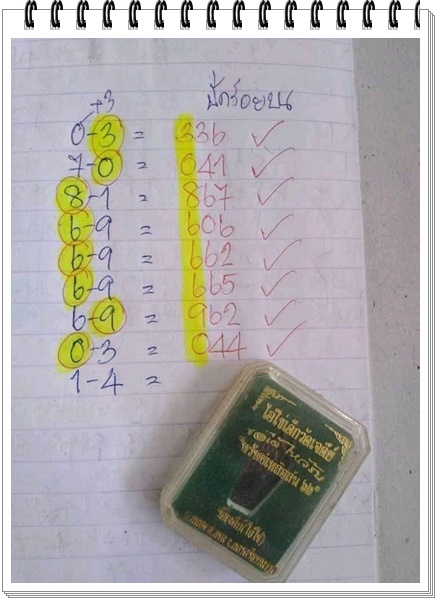 →3
ปักร้อยบน
0-3 = 336 ✓
7-0 = 041 ✓
8-1 = 867 ✓
6-9 = 606 ✓
6-9 = 662 ✓
6-9 = 665 ✓
6-9 = 962 ✓
0-3 = 044 ✓
1-4 =
ไอ้ไข่เด็กวัดเจดีย์